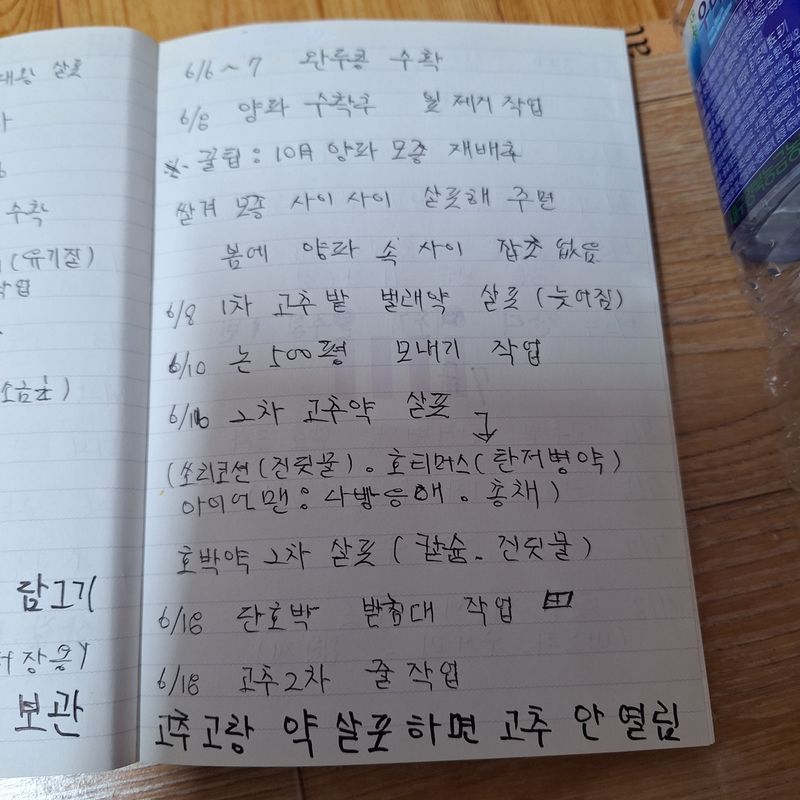 대왕 살포
수확
(유기질)
작업
담그기
보관
6/6~7 완두콩 수확
6/8 양파 수확후 널 제거 작업
※. 꿀팁 : 10月 양파 모종 재배후
쌀겨 모종 사이사이 살포해 주면
봄에 양파 속 사이 잡초 없음
6/8 1차 고추밭 벌래약 살포 (늦어짐)
6/10 논 500평 모내기 작업
6/16 2차 고추약 살포
(쏘리코션 (진딧물). 호티머스 (탄저병약)
아이언맨 : 나방 응해. 총채)
호박약 2차 살포 (칼슘. 진딧물)
6/18 단호박 받침대 작업
6/18 고추2차 줄 작업
고추고랑 약 살포하면 고추 안 열림